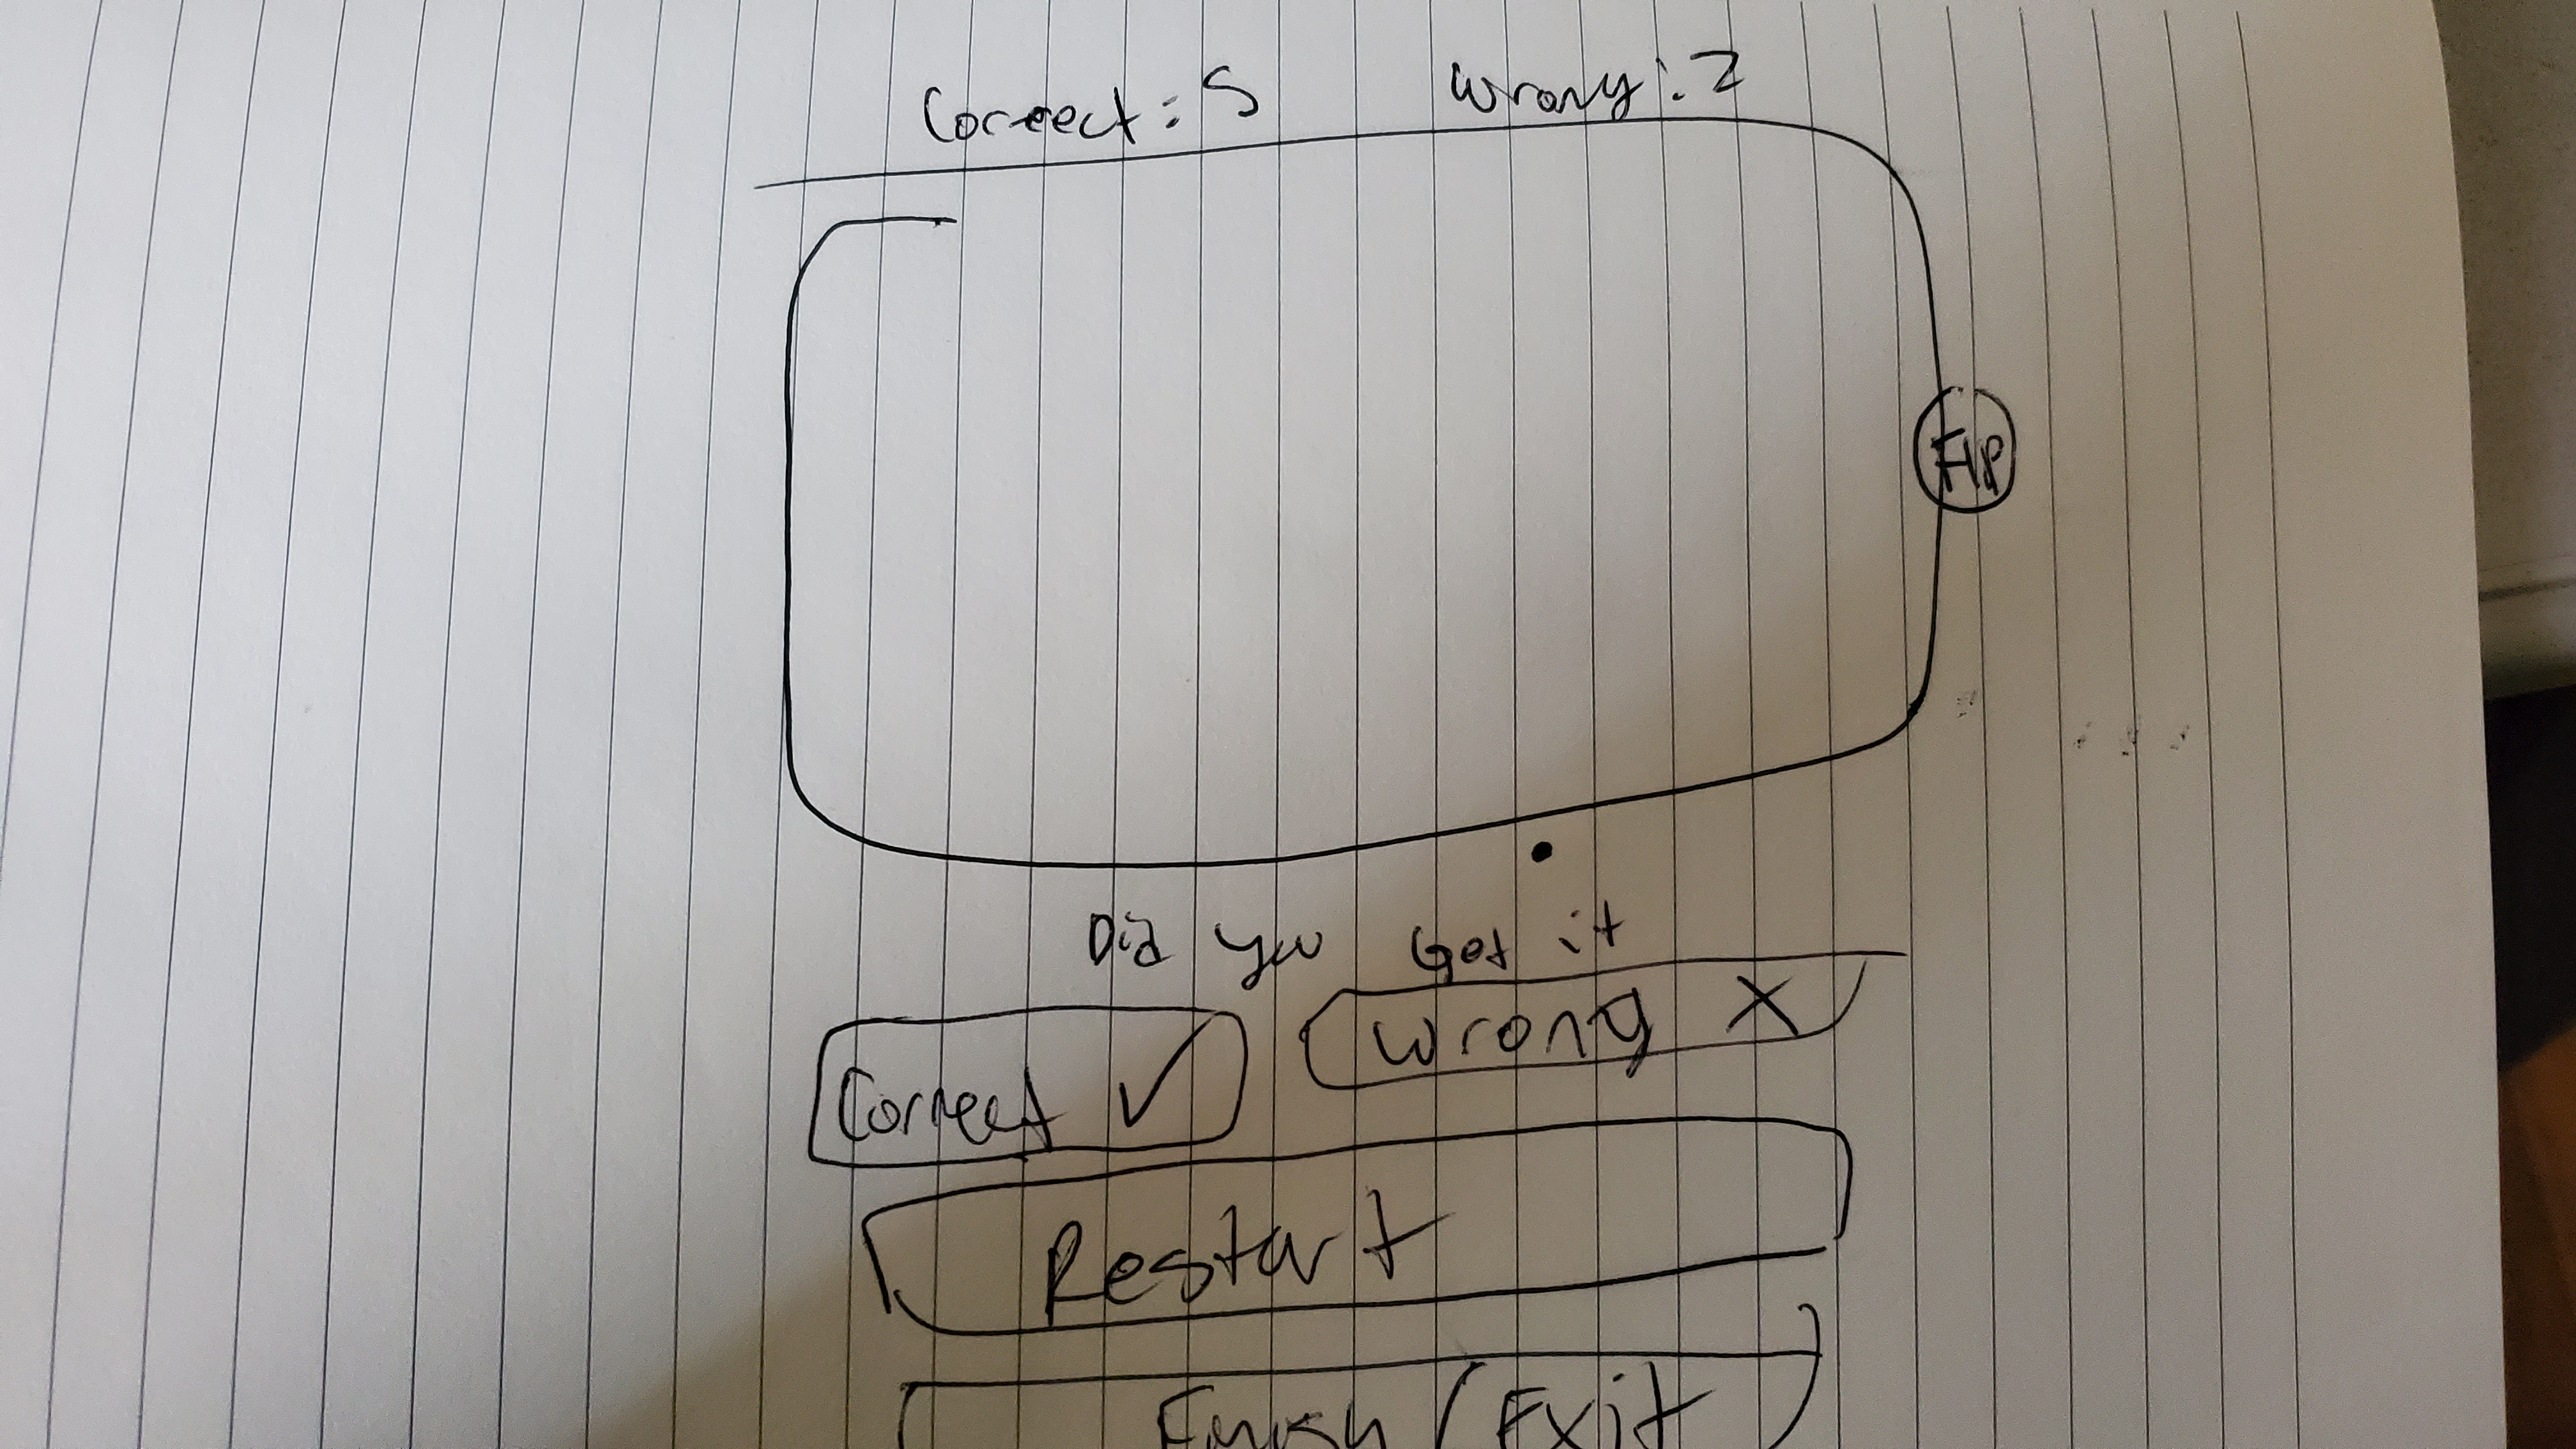 Correct: 5 Wrong: 2
Flip
Did you get it
Correct ✓ Wrong X
Restart
Finish / Exit